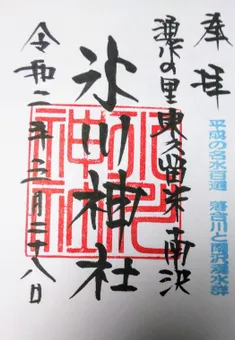 奉拝
平成の名水百選 落合川と南沢湧水群
湧水の里 東久留米 南沢
氷川神社
氷川神社
令和二年三月二十八日